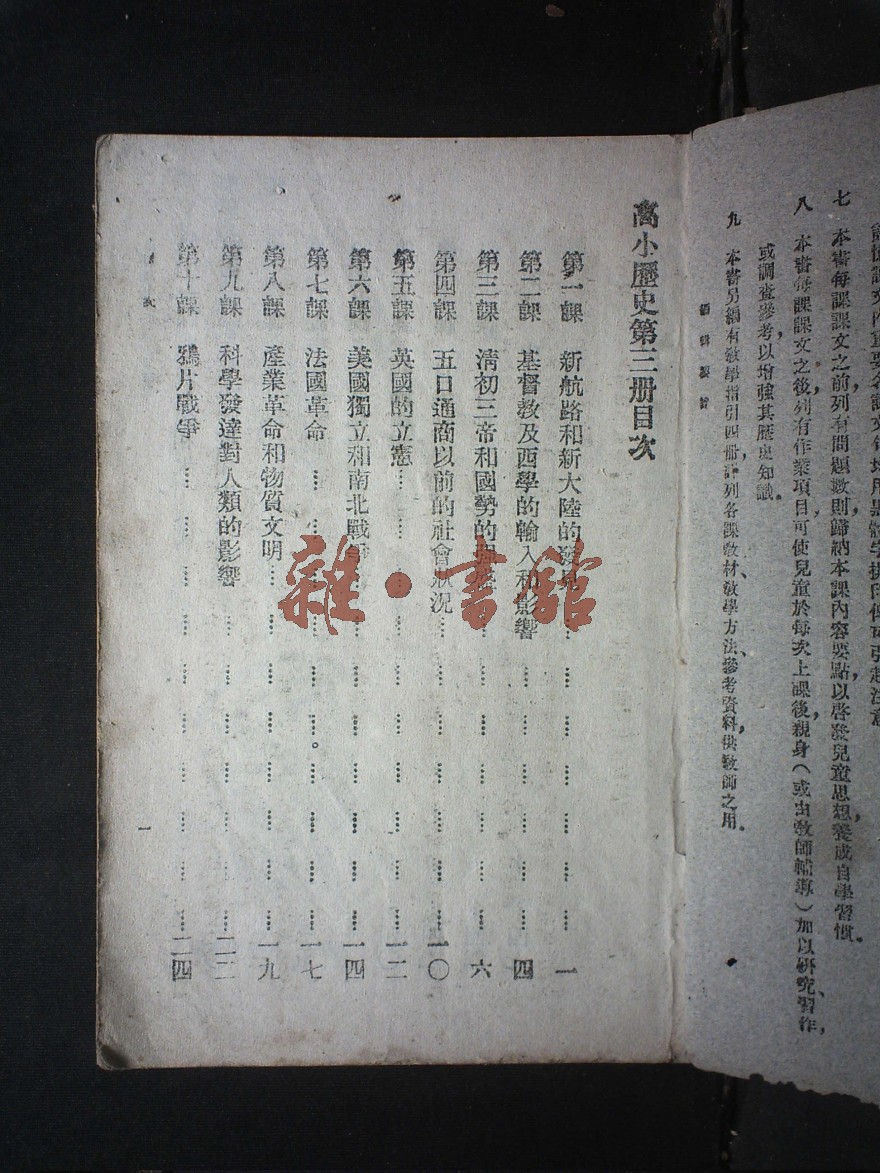 意注起引
七　本書每課課文之前列有問題數則，歸納本課內容要點，以啓發兒童思想，養成自學習慣。
八　本書每課課文之後，列有作業項目，可使兒童於每次上課後，親身（或由教師輔導）加以研究、習作，
或調查、參考，以增強其歷史知識。
九　本書另編有教學指引四冊，詳列各課教材、教學方法、參考資料，供教師之用。
編輯要旨
高小歷史第三册目次
第一課　新航路和新大陸的發見………一
第二課　基督教及西學的輸入和影響………四
第三課　清初三帝和國勢的………六
第四課　五口通商以前的社會狀況………一〇
第五課　英國的立憲………一二
第六課　美國獨立和南北戰爭………一四
第七課　法國革命………一七
第八課　產業革命和物質文明………一九
第九課　科學發達對人類的影響………二二
第十課　鴉片戰爭………二四
次
一
雜·書館